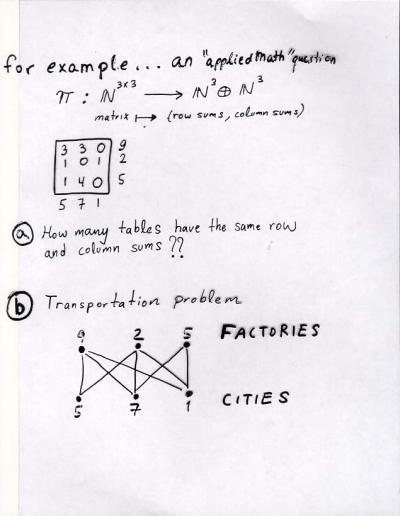 for example... an "applied math" question
π : ℕ^{3×3} ⟶ ℕ^3 ⊕ ℕ^3
matrix ⟼ (row sums, column sums)
3 3 0 9
1 0 1 2
1 4 0 5
5 7 1
ⓐ How many tables have the same row
and column sums ??
ⓑ Transportation problem
9 2 5 FACTORIES
5 7 1 CITIES